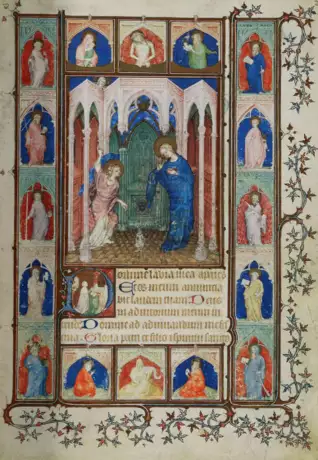 Domine labia mea aperies
Et os meum annuncia
bit laudem tuam Deus
in adiutorium meum in
tende Domine ad adiuuandum me festi
na Gloria patri et filio et spiritui sancto